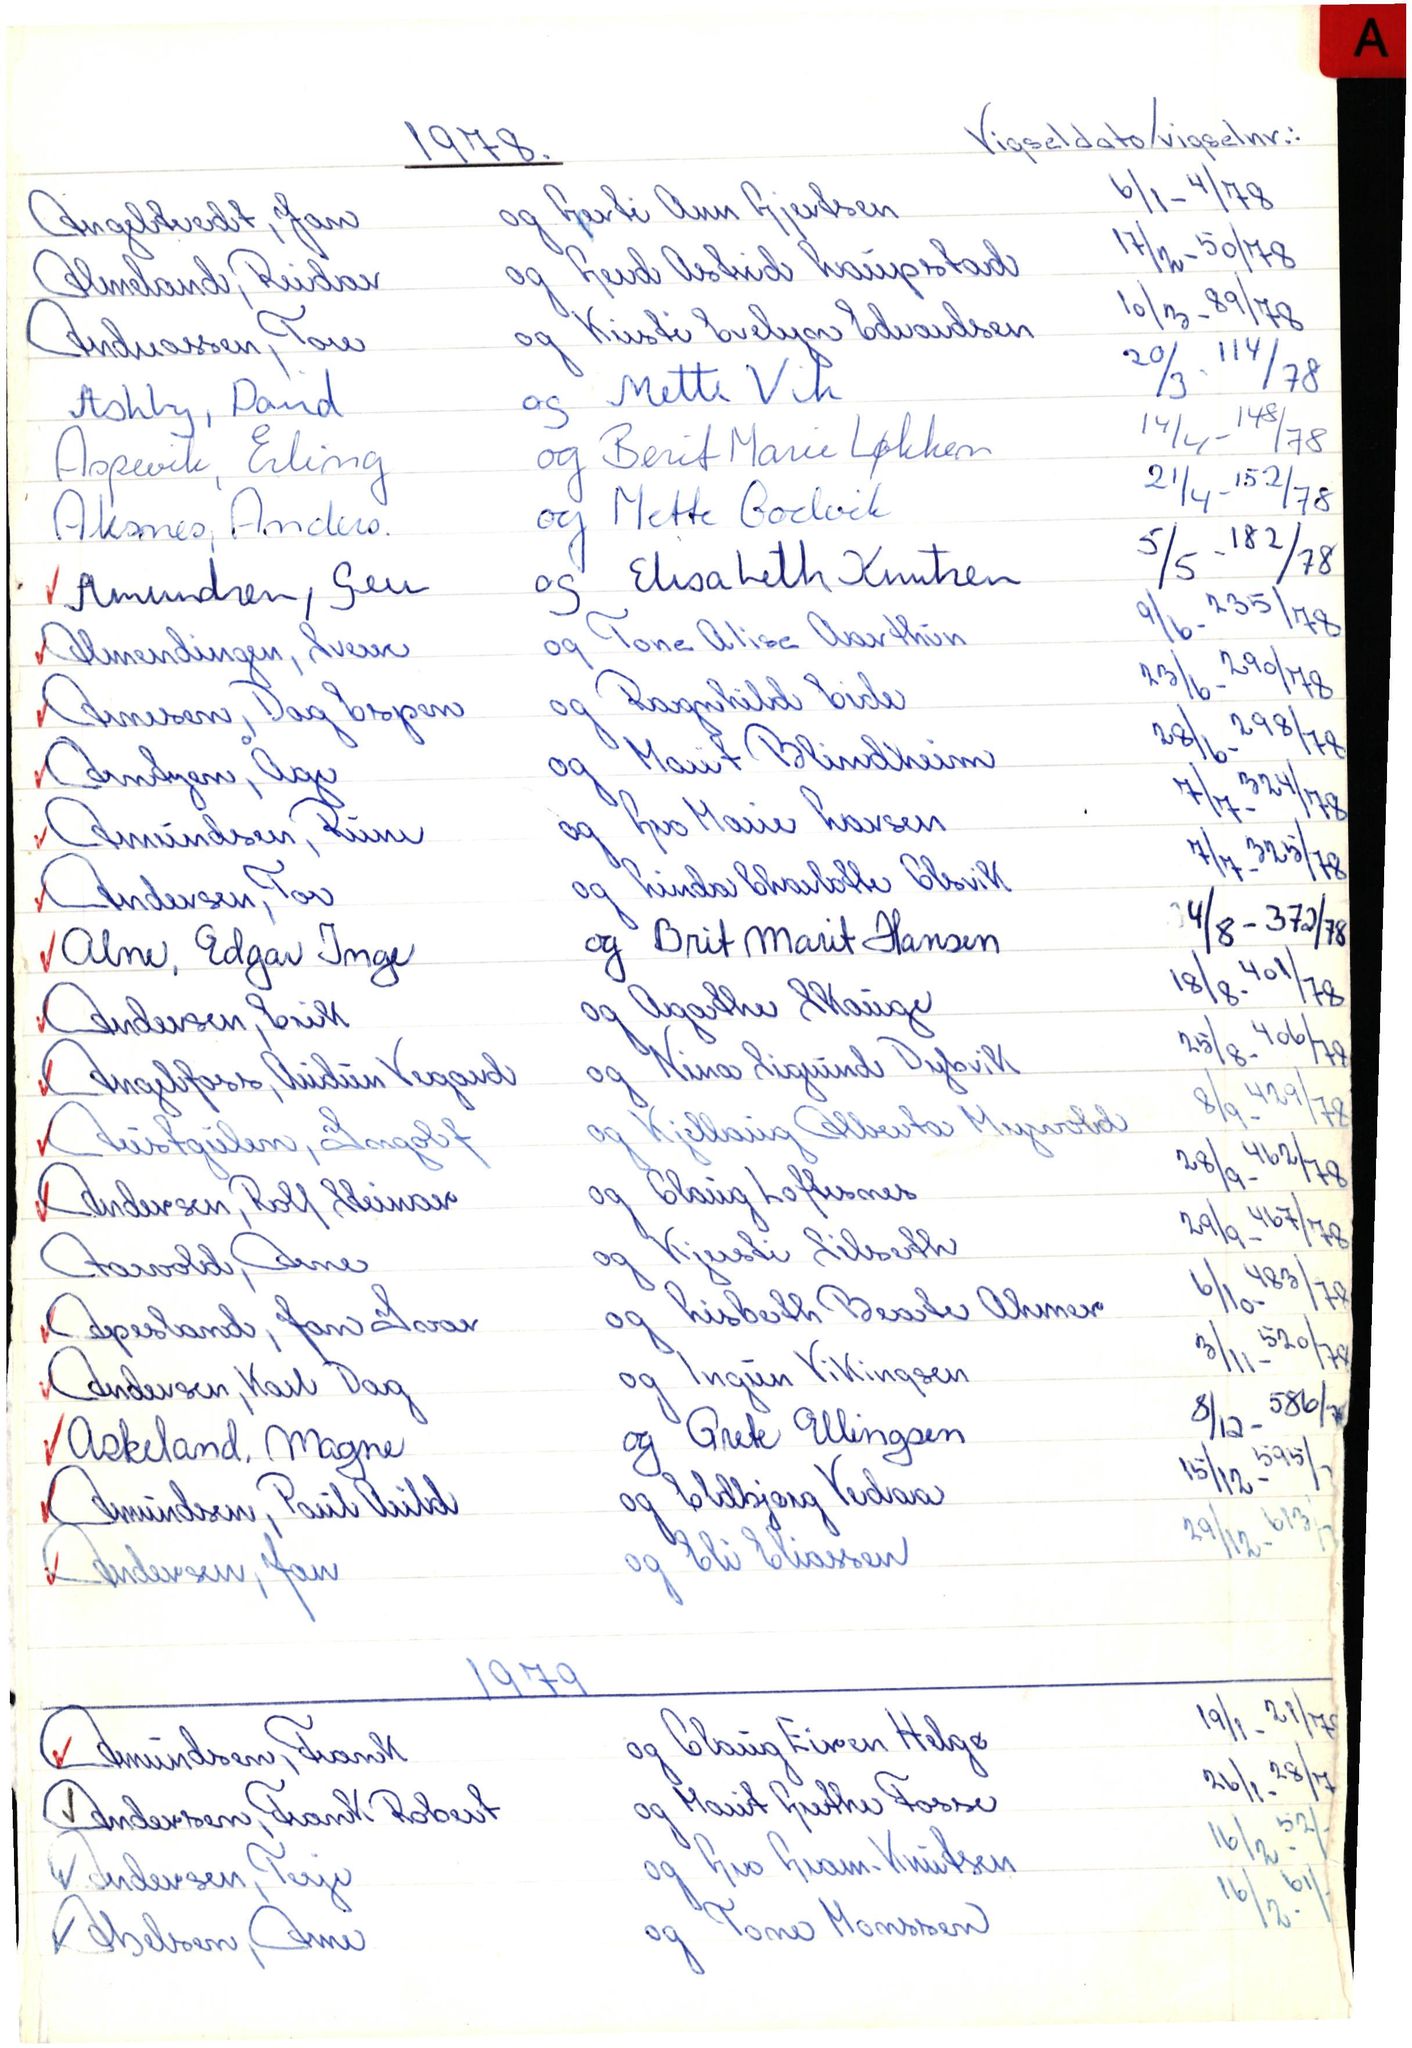 A
1978. Vigseldato/vigselnr.:
Angeltvedt, Jan og Gerti Ann Gjertsen 6/1-4/78
Almeland, Reidar og Gerd Astrid Laupstad 17/2-50/78
Andreassen, Tore og Kirsti Evelyn Edvardsen 10/3-89/78
Ashby, David og Mette Vik 20/3-114/78
Aspevik, Erling og Berit Marie Løkken 14/4-148/78
Aksnes, Anders. og Mette Godvik 21/4-152/78
Amundsen, Geir og Elisabeth Knutsen 5/5-182/78
Almendingen, Sverre og Tone Alise Aarthun 9/6-235/78
Arnesen, Dag Espen og Ragnhild Eide 23/6-290/78
Arntzen, Åge og Marit Blindheim 28/6-298/78
Amundsen, Rune og Gro Marie Larsen 7/7-324/78
Andersen, Tor og Linda Charlotte Elsvik 7/7-325/78
Alne, Edgar Inge og Brit Marit Hansen 4/8-372/78
Andersen, Erik og Agathe Skauge 18/8-401/78
Angelfoss, Audun Vegard og Nina Sigrund Dybvik 25/8-406/78
Austgulen, Ingolf og Kjellaug Alberta Myrvold 8/9-429/78
Andersen, Rolf Steinar og Olaug Loftesnes 28/9-462/78
Aarvold, Arne og Kjersti Lilseth 29/9-467/78
Apesland, Jan Ivar og Lisbeth Beate Ahmer 6/10-483/78
Andersen, Karl Dag og Ingun Vikingsen 3/11-520/78
Askeland, Magne og Grete Ellingsen 8/12-586/7
Amundsen, Paul Arild og Eldbjørg Vedvaa 15/12-595/7
Andersen, Jan og Eli Eliassen 29/12-613/7
1979
Amundsen, Frank og Olaug Eiren Helgø 19/1-21/79
Andersen, Frank Robert og Marit Grethe Fosse 26/1-28/7
Andersen, Terje og Gro Gram-Knutsen 16/2-52/
Akselsen, Arne og Tone Monssen 16/2-61/